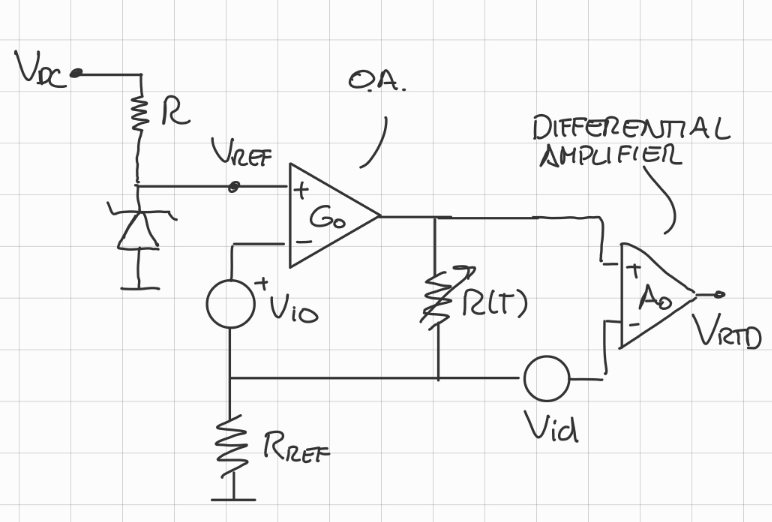 VDC
R
VREF
O.A.
DIFFERENTIAL
AMPLIFIER
+
G0
-
+
Vio
R(T)
+
A0
-
VRTD
Vid
RREF